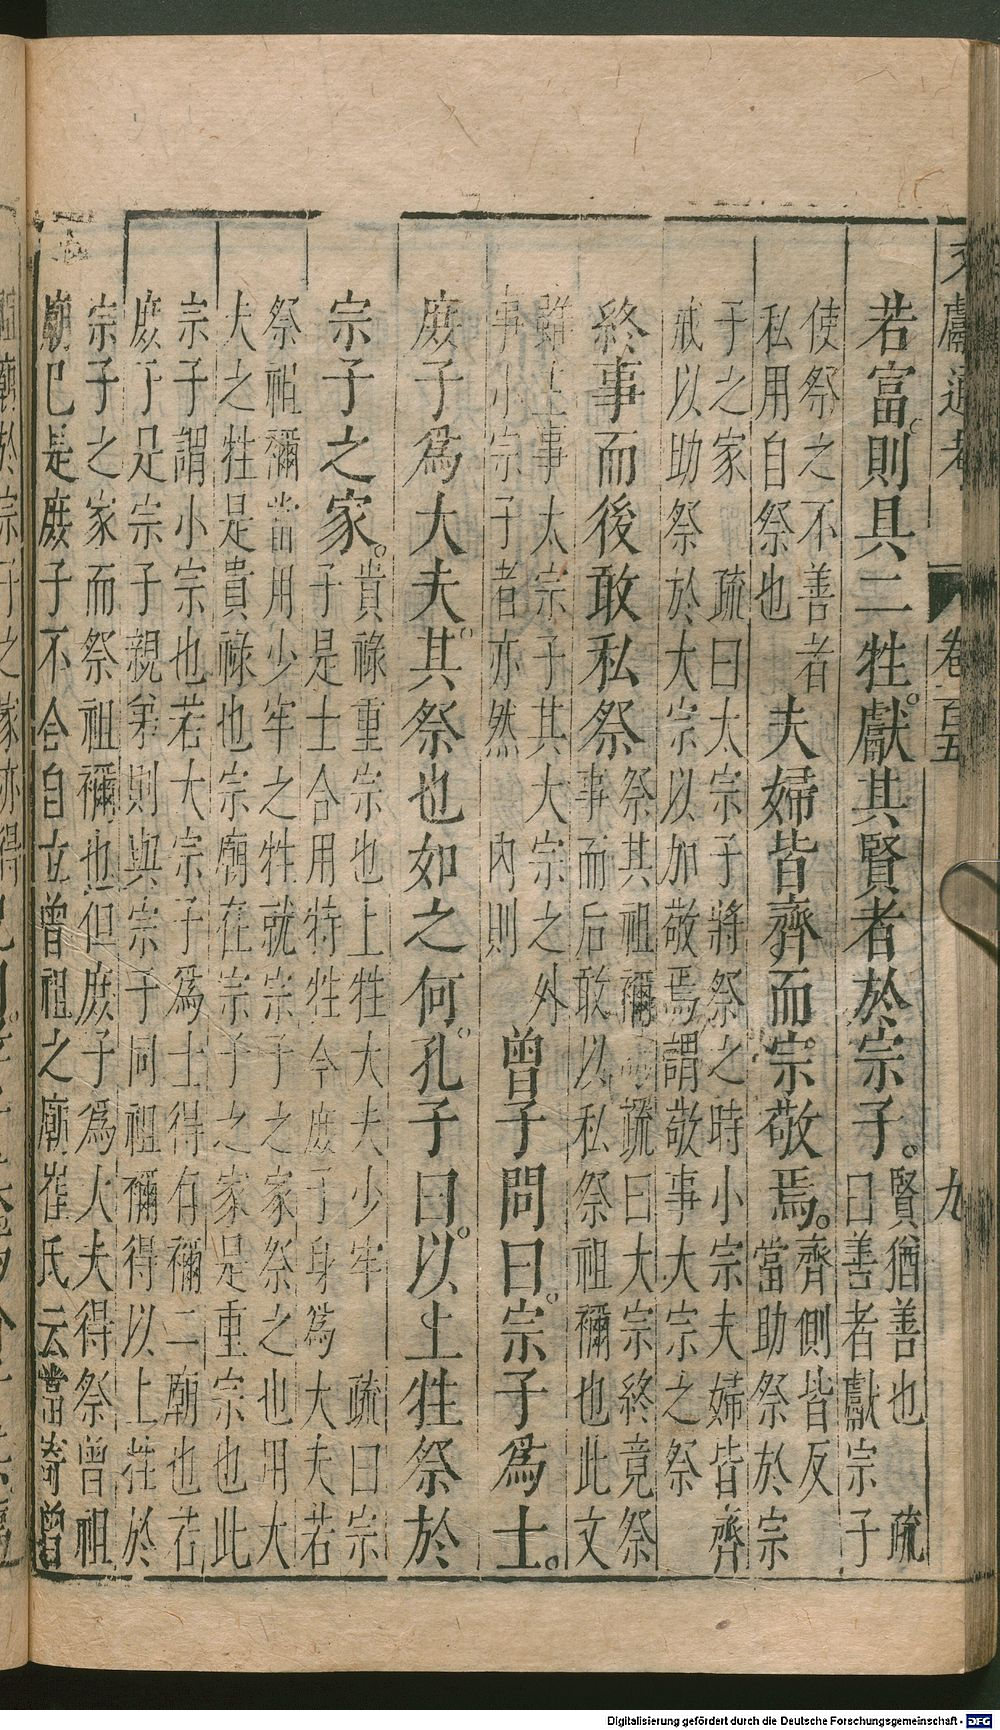 文獻通考 卷一百五 九
若富。則具二牲。獻其賢者於宗子。賢猶善也 疏
曰善者獻宗子
使祭之不善者
私用自祭也 夫婦皆齊而宗敬焉。齊側皆反
當助祭於宗
子之家 疏曰大宗子將祭之時小宗夫婦皆齊
戒以助祭於大宗以加敬焉謂敬事大宗之祭
終事而後敢私祭 祭其祖禰 疏曰大宗終竟祭
事而后敢以私祭祖禰也此文
雖主事太宗子其大宗之外
事小宗子者亦然 內則 曾子問曰。宗子爲士。
庶子爲大夫。其祭也如之何。孔子曰。以上牲祭於
宗子之家。貴祿重宗也上牲大夫少牢 疏曰宗
子是士合用特牲今庶子身爲大夫若
祭祖禰當用少牢之牲就宗子之家祭之也用大
夫之牲是貴祿也宗廟在宗子之家是重宗也此
宗子謂小宗也若大宗子爲士得有禰二廟也若
庶子是宗子親弟則與宗子同祖禰得以上牲於
宗子之家而祭祖禰也但庶子爲大夫得祭曾祖
廟已是庶子不合自立曾祖之廟崔氏云當寄曾
Digitalisierung gefördert durch die Deutsche Forschungsgemeinschaft - DFG